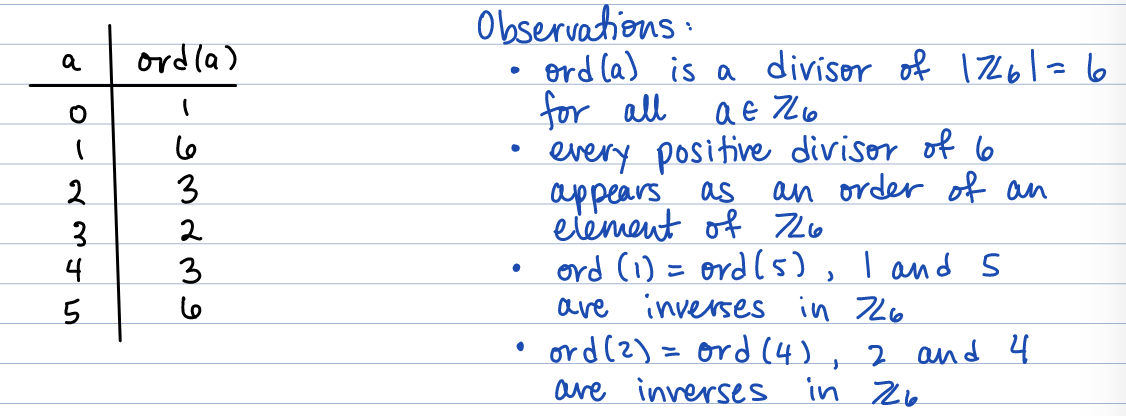 a ord(a)
0 1
1 6
2 3
3 2
4 3
5 6
Observations:
• ord(a) is a divisor of |ℤ₆| = 6
for all a ∈ ℤ₆
• every positive divisor of 6
appears as an order of an
element of ℤ₆
• ord(1) = ord(5), 1 and 5
are inverses in ℤ₆
• ord(2) = ord(4), 2 and 4
are inverses in ℤ₆